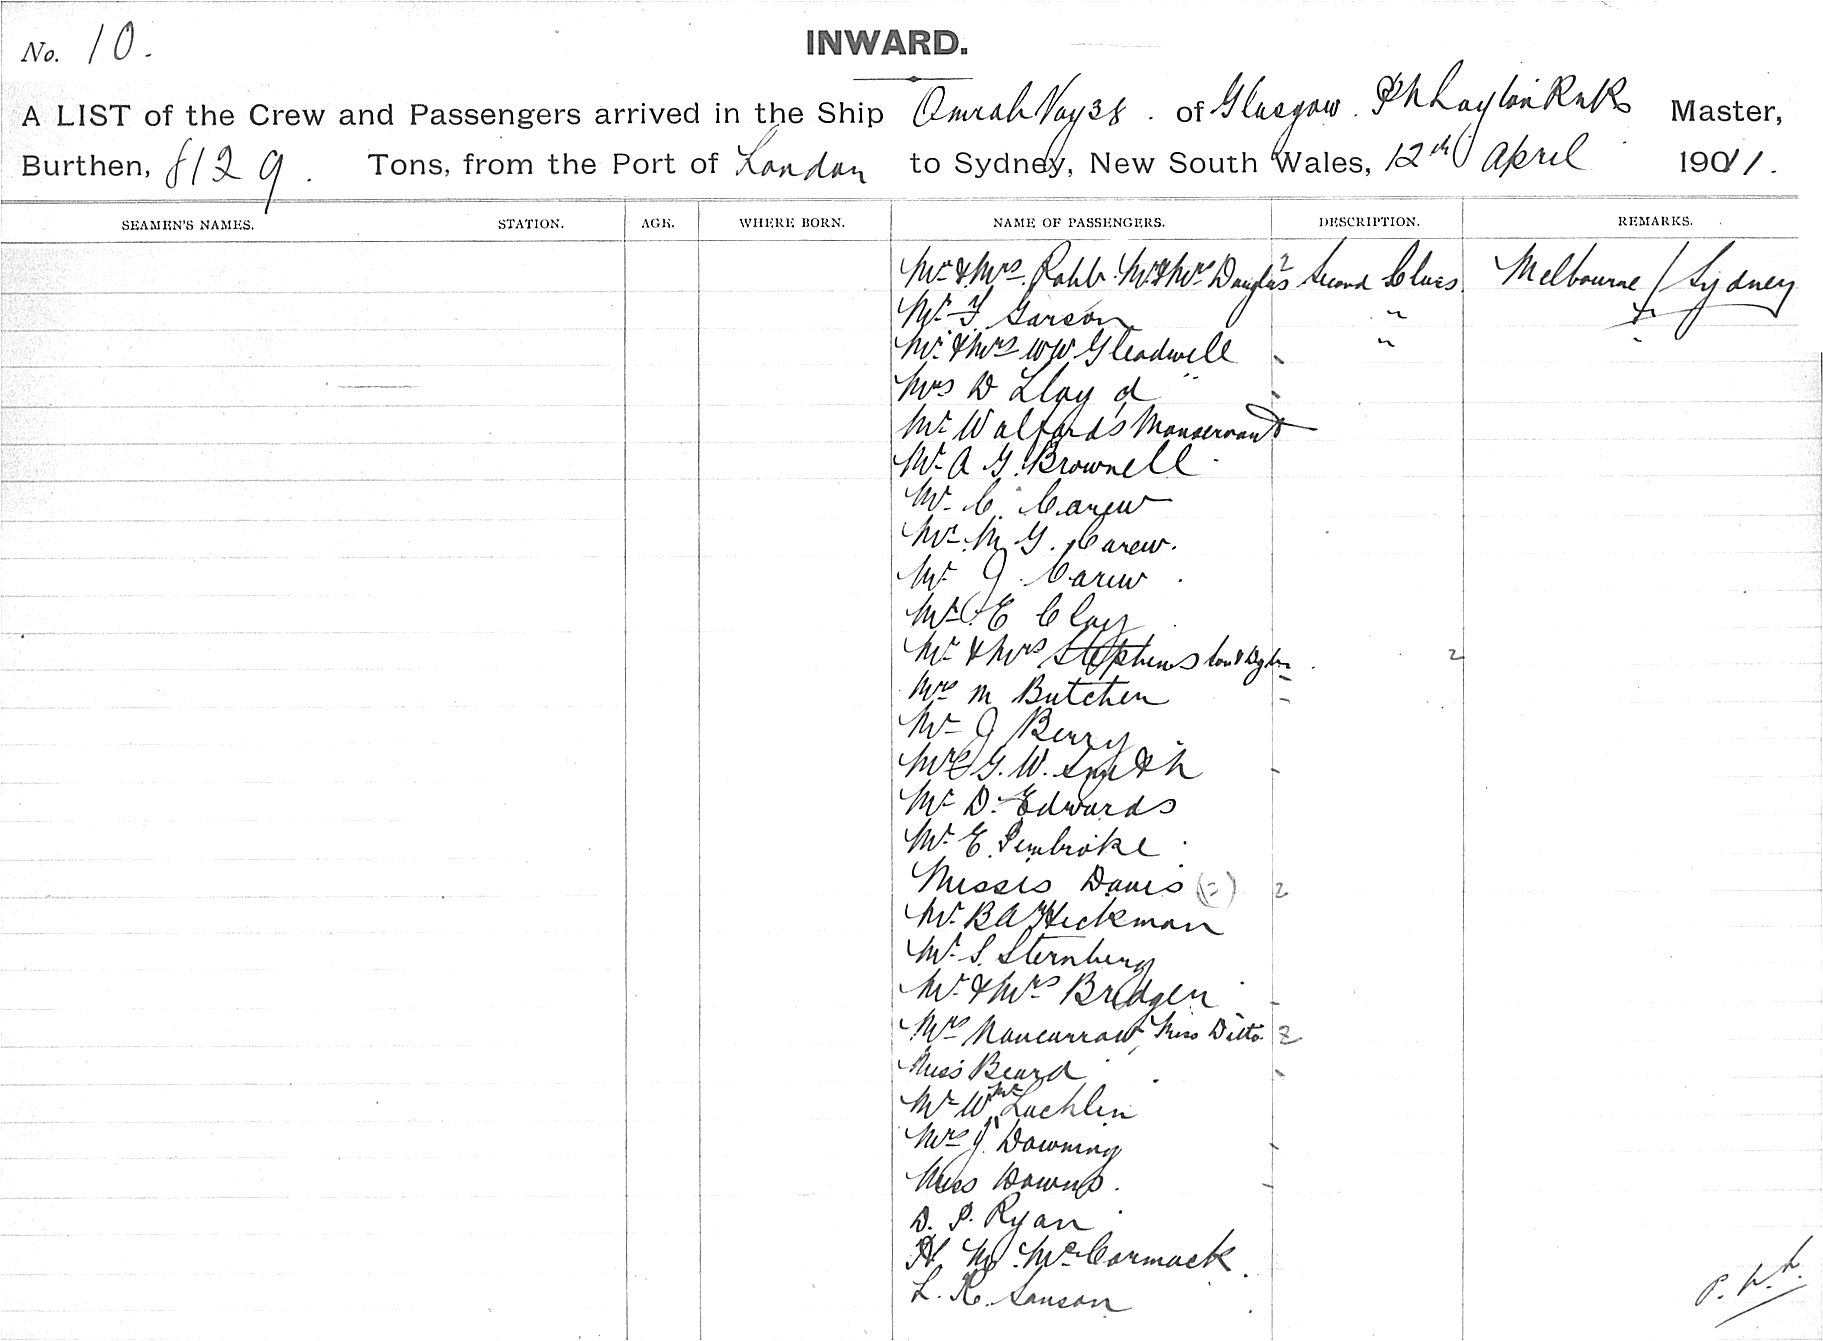 No. 10.
INWARD.
A LIST of the Crew and Passengers arrived in the Ship Omrah Voy 38. of Glasgow. Layton RNR Master,
Burthen, 8129. Tons, from the Port of London to Sydney, New South Wales, 12th April 1911.
SEAMEN'S NAMES. STATION. AGE. WHERE BORN. NAME OF PASSENGERS. DESCRIPTION. REMARKS.
Mr & Mrs Robb. Mr & Mrs Douglas 2 Second Class. Melbourne / Sydney
Mr F Garson "
Mr & Mrs WW Gleadwell "
Mrs D Lloyd
Mr Walford's Manservant
Mr A G. Brownell
Mr C. Carew
Mr M G. Carew.
Mr J. Carew
Mr E Clay
Mr & Mrs Stephens Son & Dghtr 2
Mrs M Butcher
Mr J Berry
G. W. Smith
Mr D. Edwards
Mr E. Pembroke
Misses Davis (2) 2
Mr. B A Hickman
Mr. S. Sternberg
Mr. & Mrs Bridgen
Mrs Nancarrow, Miss Ditto 2
Miss Beard
Mr W Mc Lachlin
Mrs J. Downing
Miss Downs.
D. P. Ryan
H. M. McCormack.
L. R. Sanson
P. W. L.